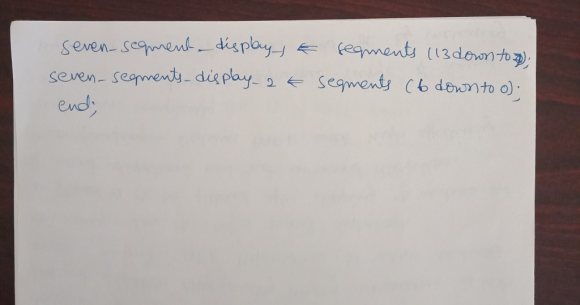 seven_segment_display_1 <= segments (13 downto 7);
seven_segments_display_2 <= segments (6 downto 0);
end;